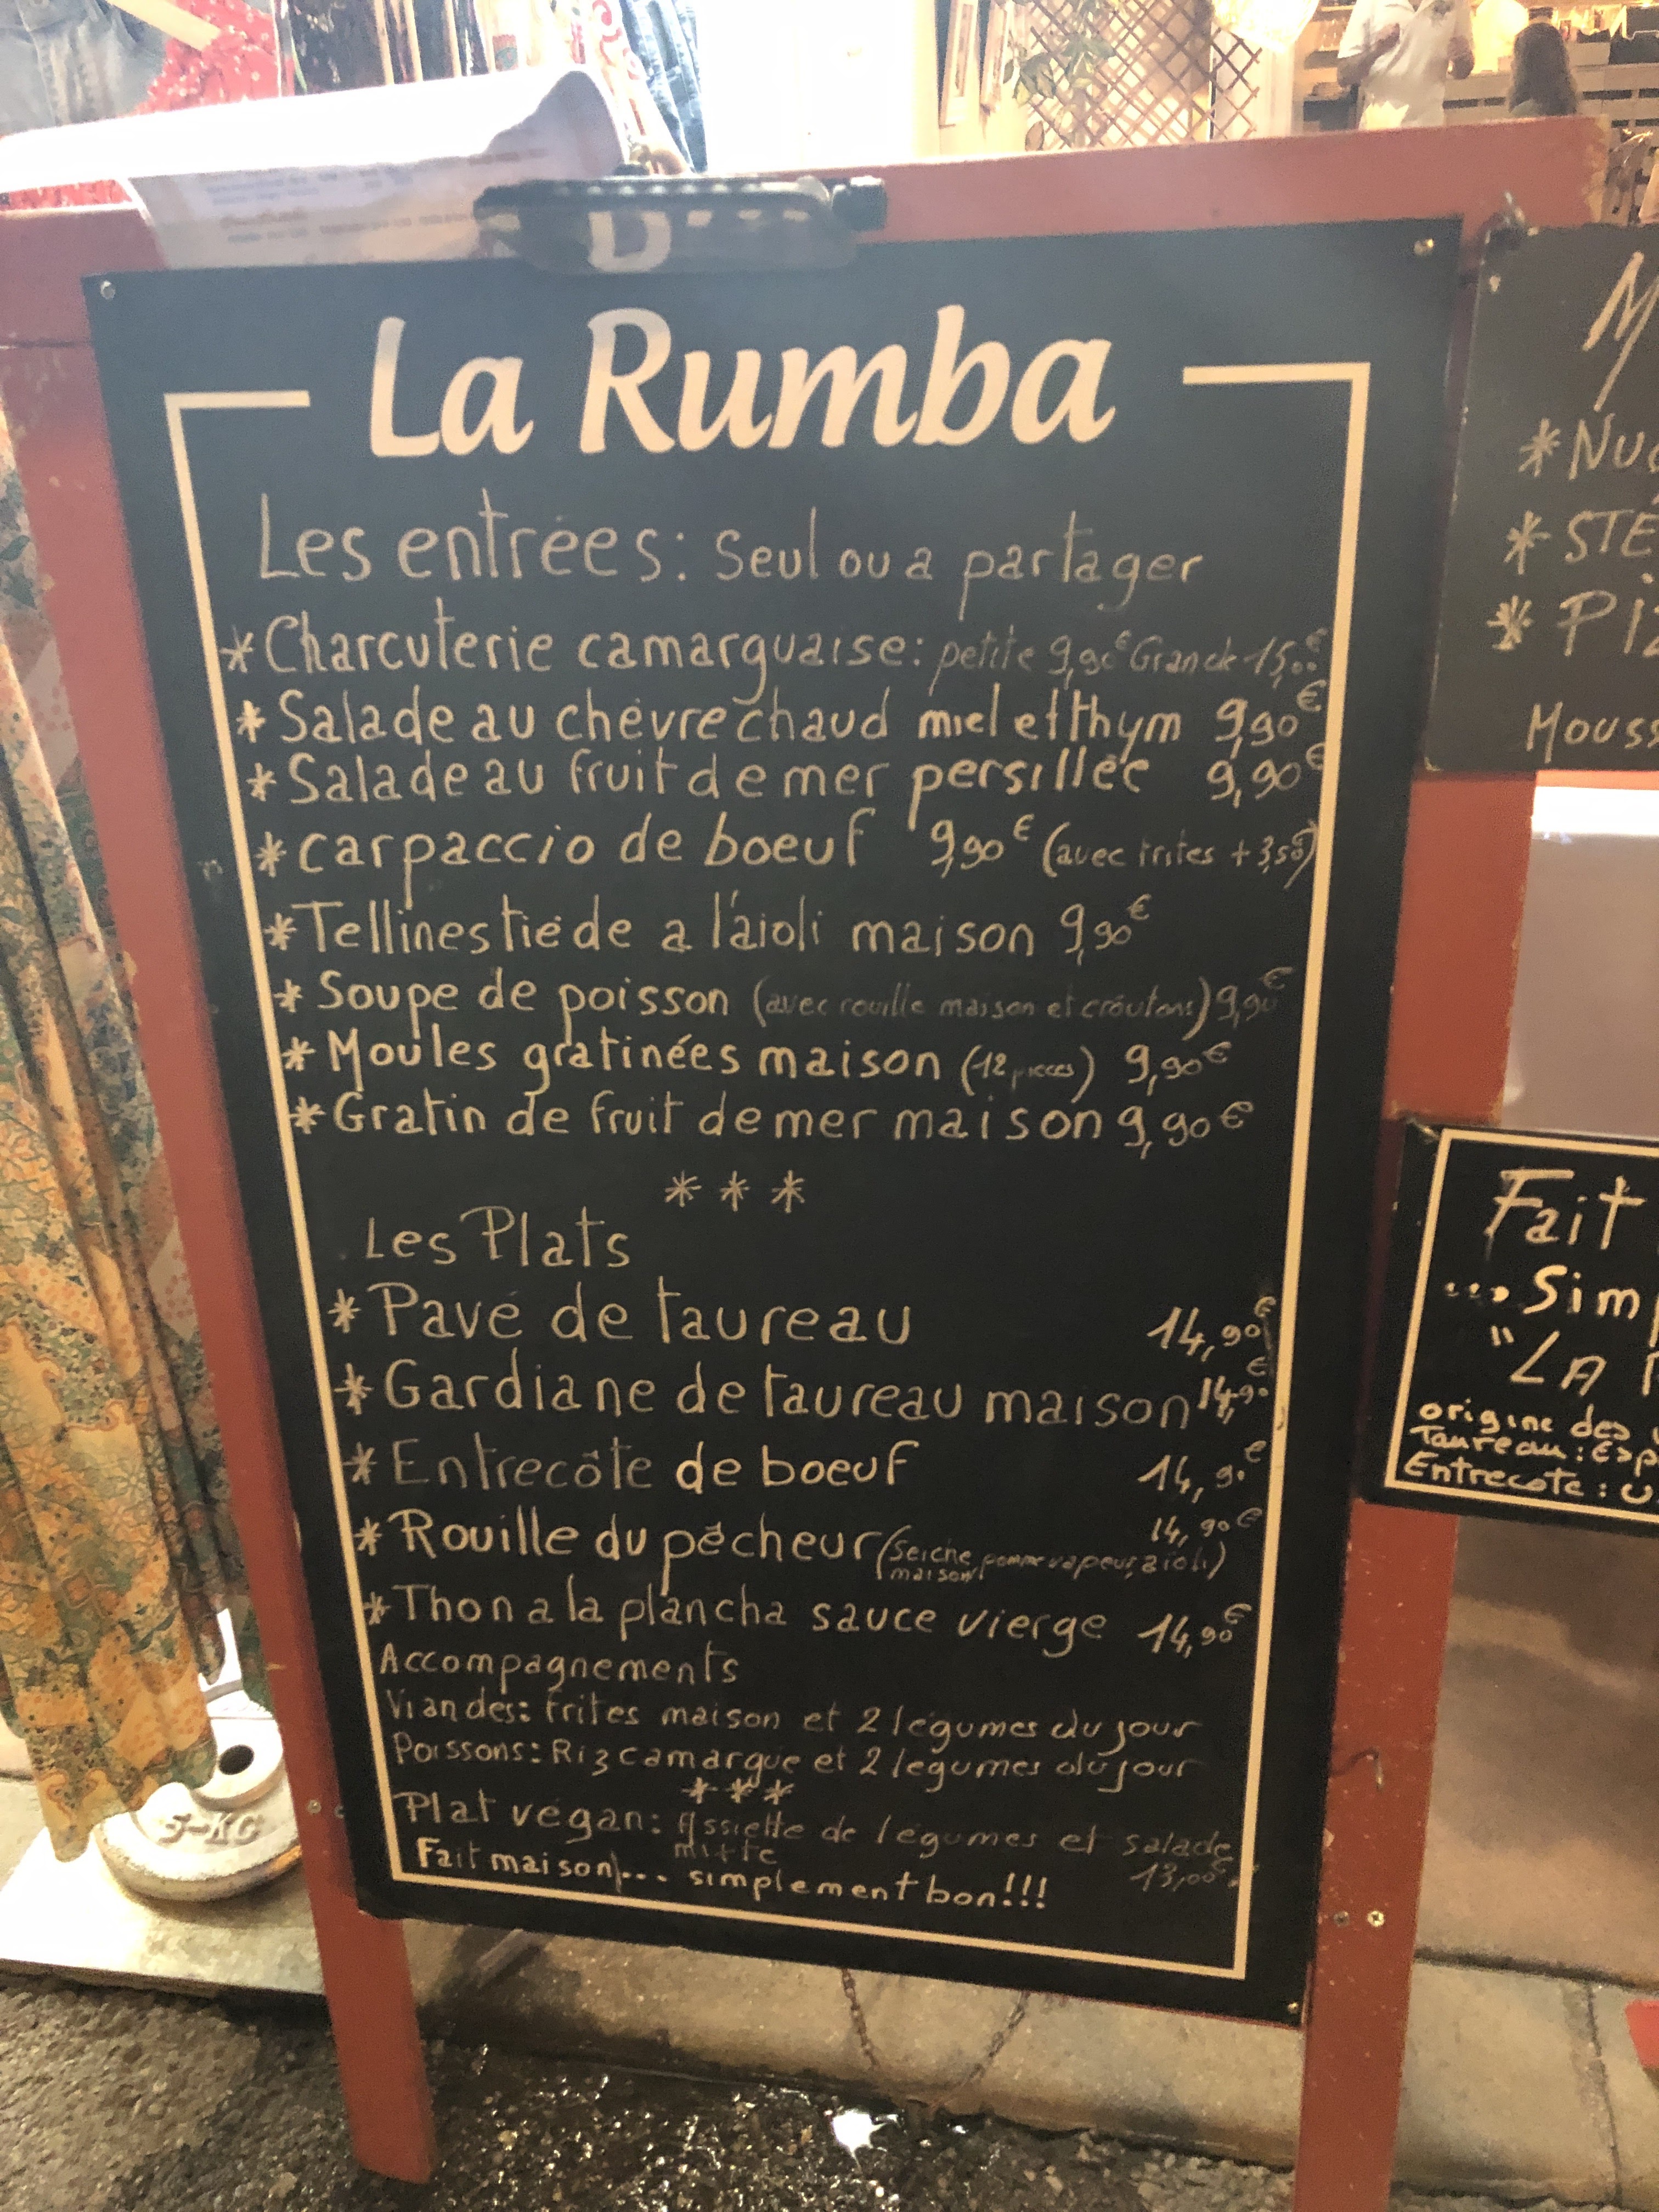 La Rumba
Les entrées: Seul ou a partager
*Charcuterie camarguaise: petite 9,90€ Grande 15,00€
*Salade au chévre chaud miel et thym 9,90€
*Salade au fruit de mer persillée 9,90€
*carpaccio de boeuf 9,90€ (avec frites + 3,50)
*Tellines tiéde a l'aioli maison 9,90€
*Soupe de poisson (avec rouille maison et croûtons) 9,90€
*Moules gratinées maison (12 pieces) 9,90€
*Gratin de fruit de mer maison 9,90€
* * *
Les Plats
*Pavé de taureau 14,90€
*Gardiane de taureau maison 14,90€
*Entrecôte de boeuf 14,90€
*Rouille du pêcheur (Seiche, pomme vapeur, aioli maison) 14,90€
*Thon a la plancha sauce vierge 14,90€
Accompagnements
Viandes: frites maison et 2 légumes du jour
Poissons: Riz camargue et 2 légumes du jour
* * *
Plat végan: Assiette de légumes et salade
13,00€
Fait maison... simplement bon!!!
M
*Nug
*STE
*Piz
Mouss
Fait
...Simp
"LA R
origine des v
Taureau: Esp
Entrecote: U.
5-KG